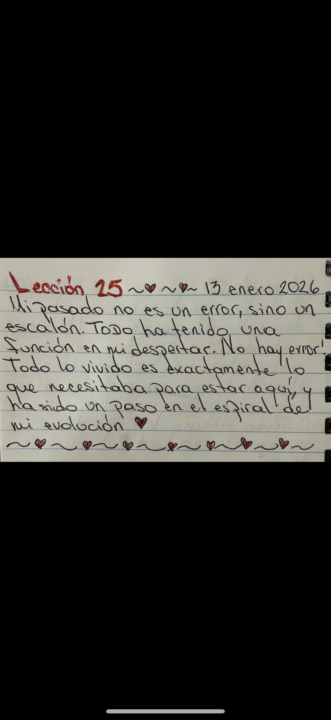 Lección 25 ~♥~♥~ 13 enero 2026
Mi pasado no es un error, sino un
escalón. Todo ha tenido una
función en mi despertar. No hay error!
Todo lo vivido es exactamente lo
que necesitaba para estar aquí, y
ha sido un paso en el espiral de
mi evolución ♥